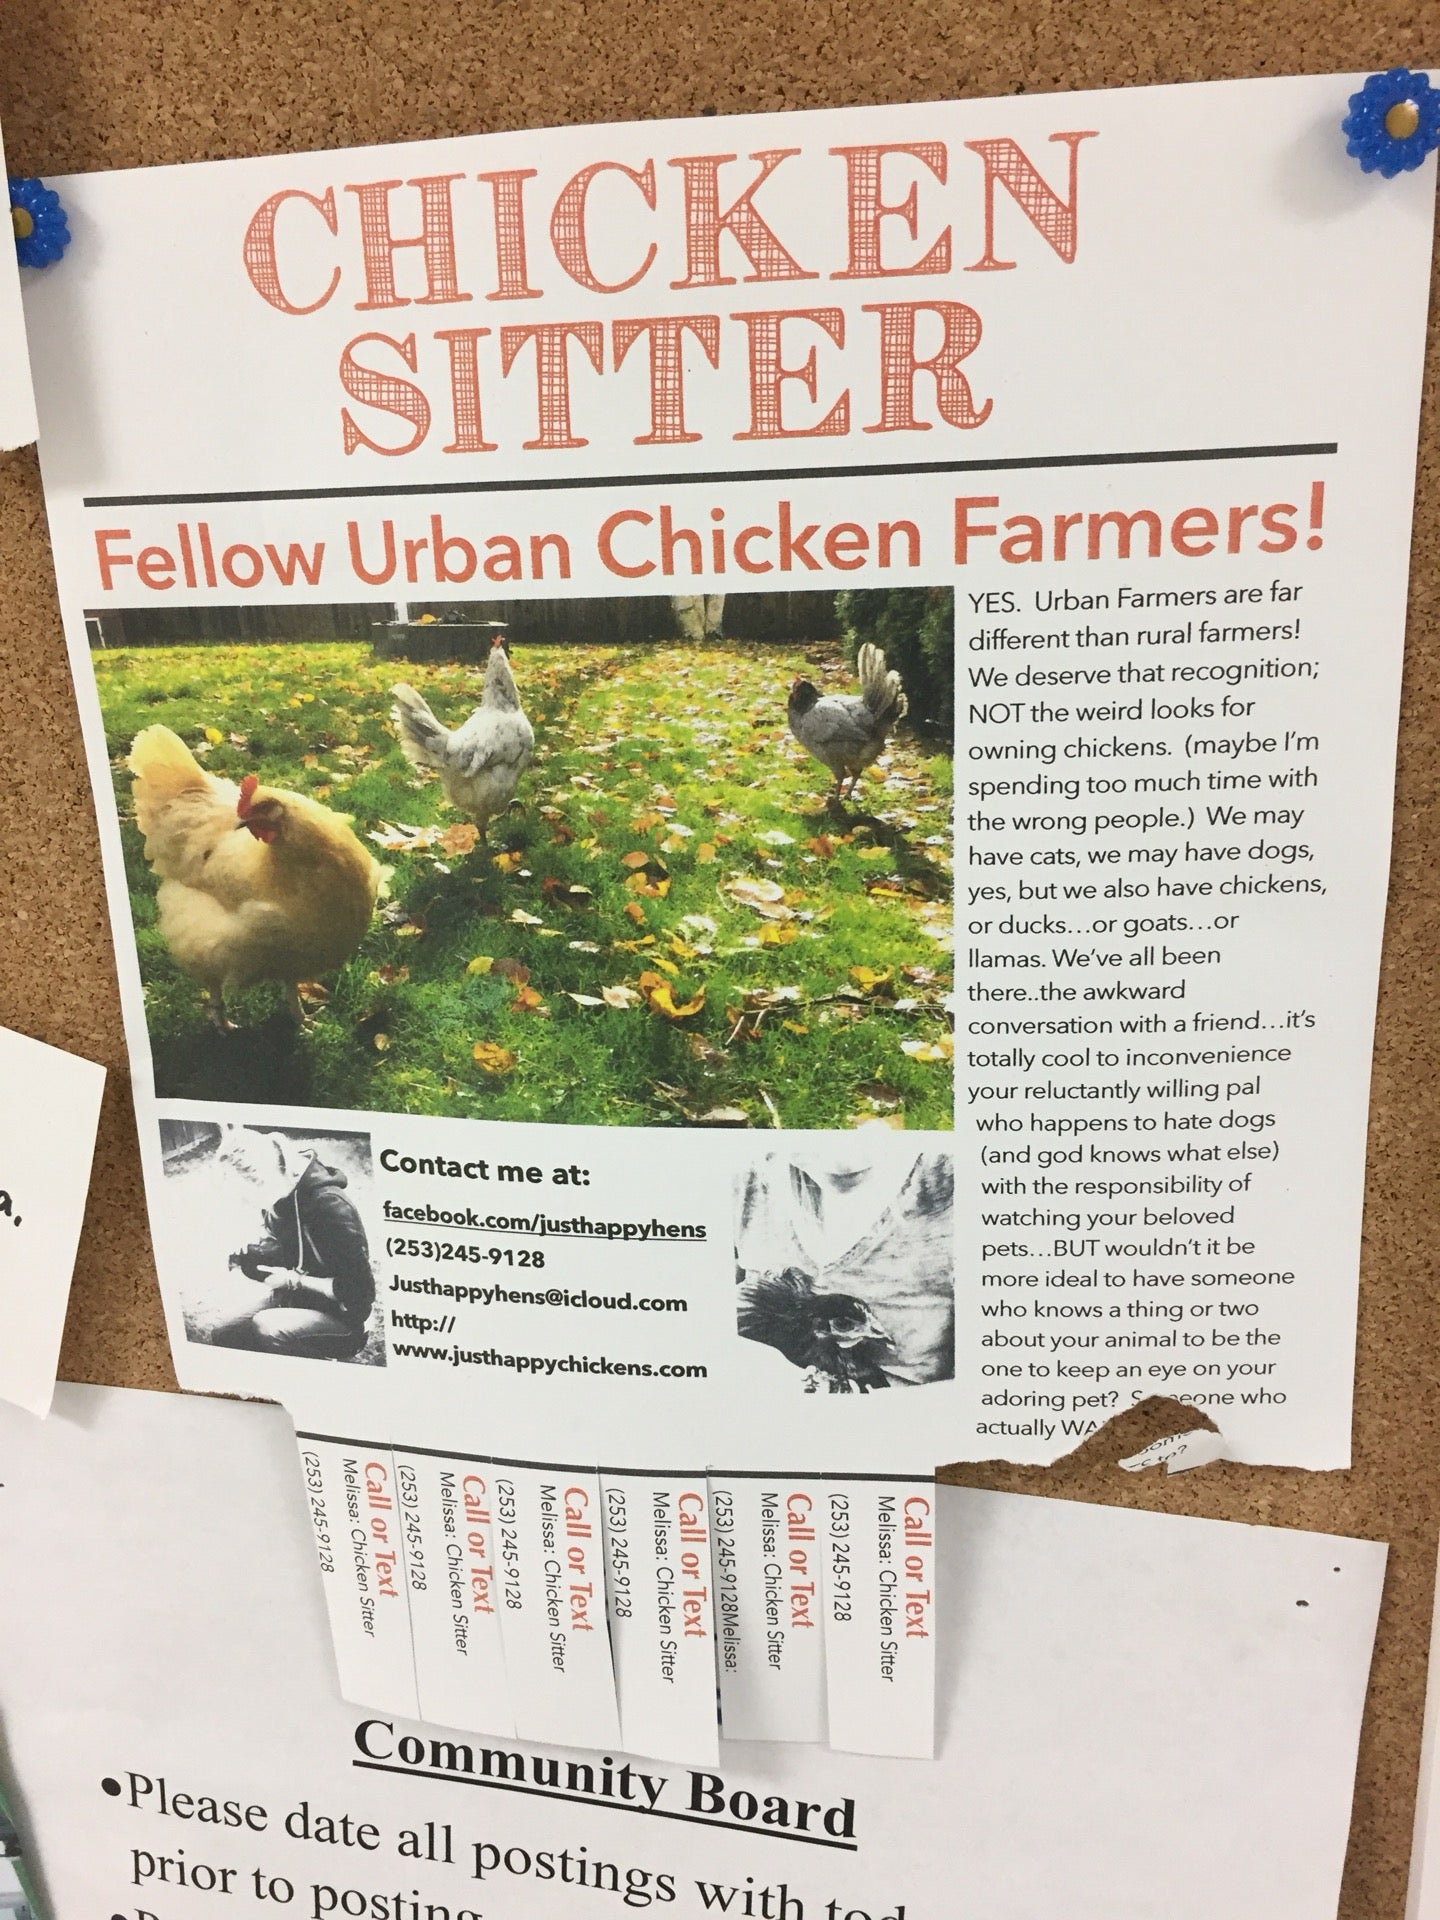 CHICKEN
SITTER
Fellow Urban Chicken Farmers!
YES. Urban Farmers are far
different than rural farmers!
We deserve that recognition;
NOT the weird looks for
owning chickens. (maybe I'm
spending too much time with
the wrong people.) We may
have cats, we may have dogs,
yes, but we also have chickens,
or ducks...or goats...or
llamas. We've all been
there..the awkward
conversation with a friend...it's
totally cool to inconvenience
your reluctantly willing pal
who happens to hate dogs
(and god knows what else)
with the responsibility of
watching your beloved
pets...BUT wouldn't it be
more ideal to have someone
who knows a thing or two
about your animal to be the
one to keep an eye on your
adoring pet? who
actually
Contact me at:
facebook.com/justhappyhens
(253)245-9128
Justhappyhens@icloud.com
http://
www.justhappychickens.com
Call or Text
Melissa: Chicken Sitter
(253) 245-9128
Call or Text
Melissa: Chicken Sitter
(253) 245-9128
Call or Text
Melissa: Chicken Sitter
(253) 245-9128
Call or Text
Melissa: Chicken Sitter
(253) 245-9128
Call or Text
Melissa: Chicken Sitter
(253) 245-9128Melissa:
Call or Text
Melissa: Chicken Sitter
(253) 245-9128
Community Board
•Please date all postings with
prior to posting